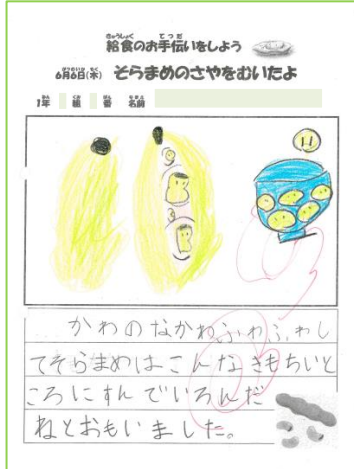 きゅうしょく てつだ
給食のお手伝いをしよう
6月6日(水) そらまめのさやをむいたよ
1年 組 番 名前
かわのなかわふわふわし
てそらまめはこんなきもちいと
ころにすんでいるんだ
ねとおもいました。